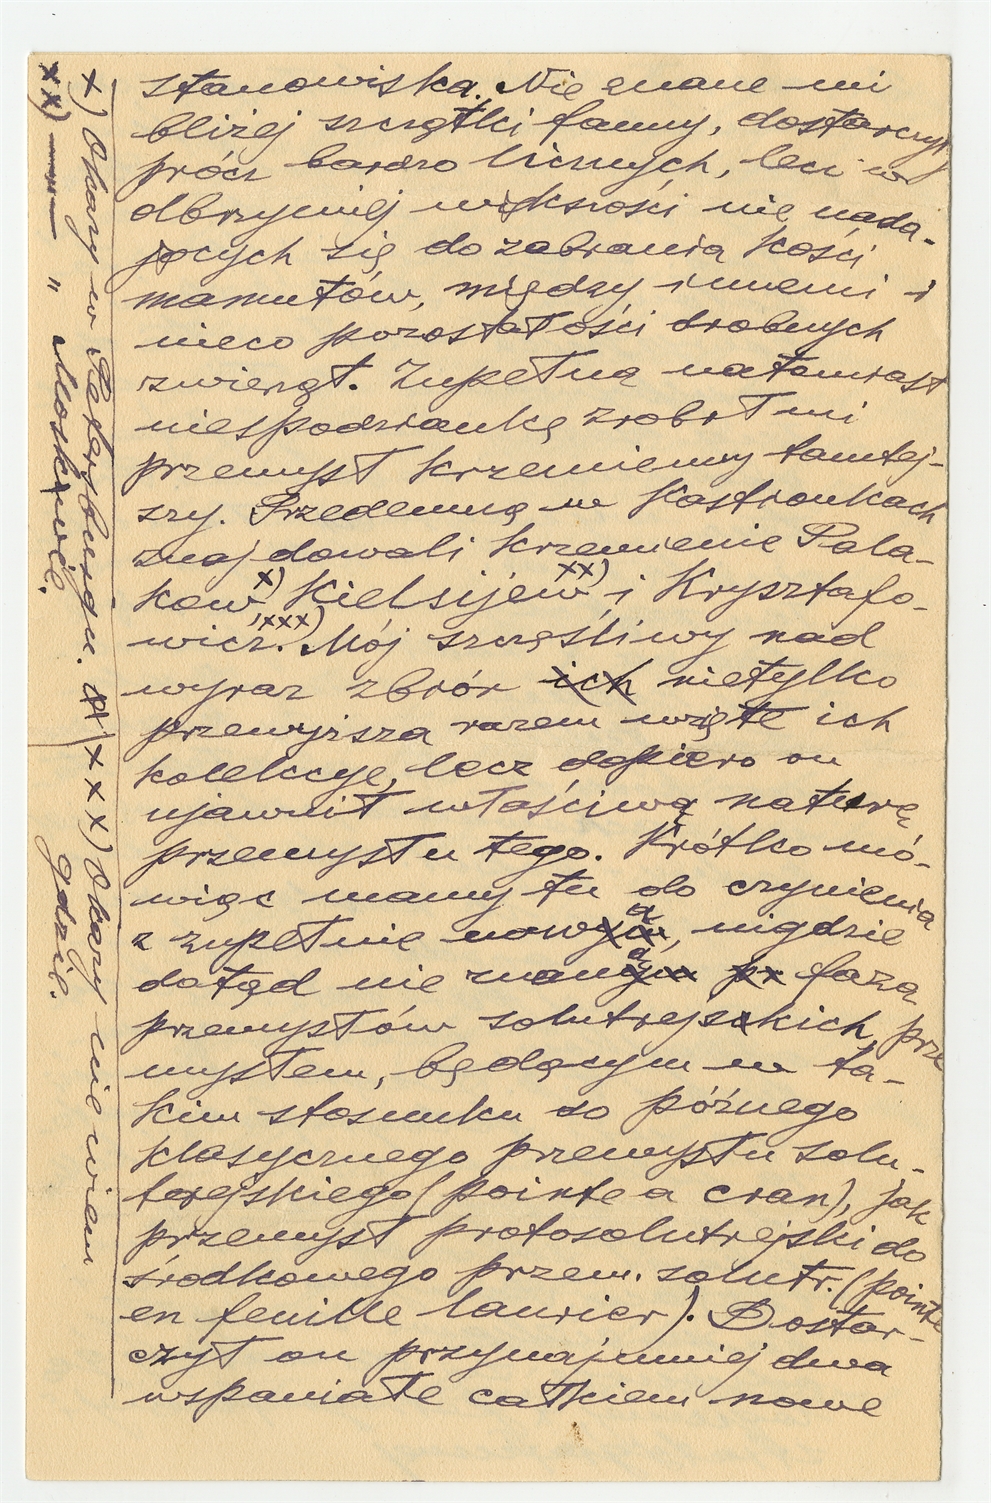 stanowiska. Nie znane mi
bliżej szczątki fauny, dostarczył
prócz bardzo licznych, lecz w
olbrzymiej większości nie nada-
jących się do zabrania kości
mamutów, między innemi i
nieco pozostałości drobnych
zwierząt. Zupełną natomiast
niespodziankę zrobił mi
przemysł krzemienny tamtej-
szy. Przedemną w Kostionkach
znajdowali krzemienie Pola-
kow x), Kielsijew xx) i Krysztafo-
wicz. xxx) Mój szczęśliwy nad
wyraz zbiór ich nietylko
przewyższa razem wzięte ich
kolekcye, lecz dopiero on
ujawnił właściwą naturę
przemysłu tego. Krótko mó-
wiąc mamy tu do czynienia
z zupełnie nową, nigdzie
dotąd nie znaną fazą
przemysłów solutrejskich, prze
mysłem, będącym w ta-
kim stosunku do późnego
klasycznego przemysłu solu-
trejskiego (pointe a cran), jak
przemysł protosolutrejski do
środkowego przem. solutr. (pointe
en feuille laurier). Dostar-
czył on przynajmniej dwa
wspaniałe całkiem nowe
x) Okazy w Petersburgu. xxx) Okazy nie wiem
gdzie.
xx) —— " Moskwie.